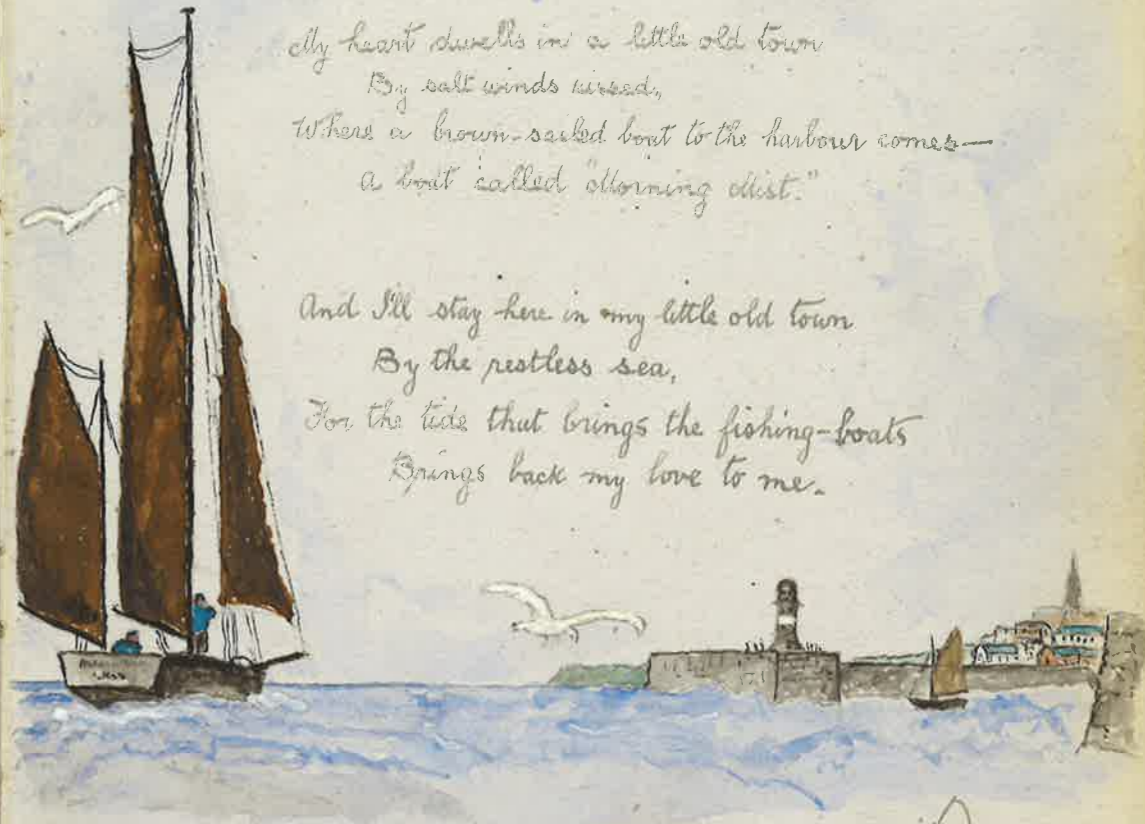 My heart dwells in a little old town
By salt winds kissed,
Where a brown-sailed boat to the harbour comes—
A boat called "Morning Mist."
And I'll stay here in my little old town
By the restless sea,
For the tide that brings the fishing-boats
Brings back my love to me.